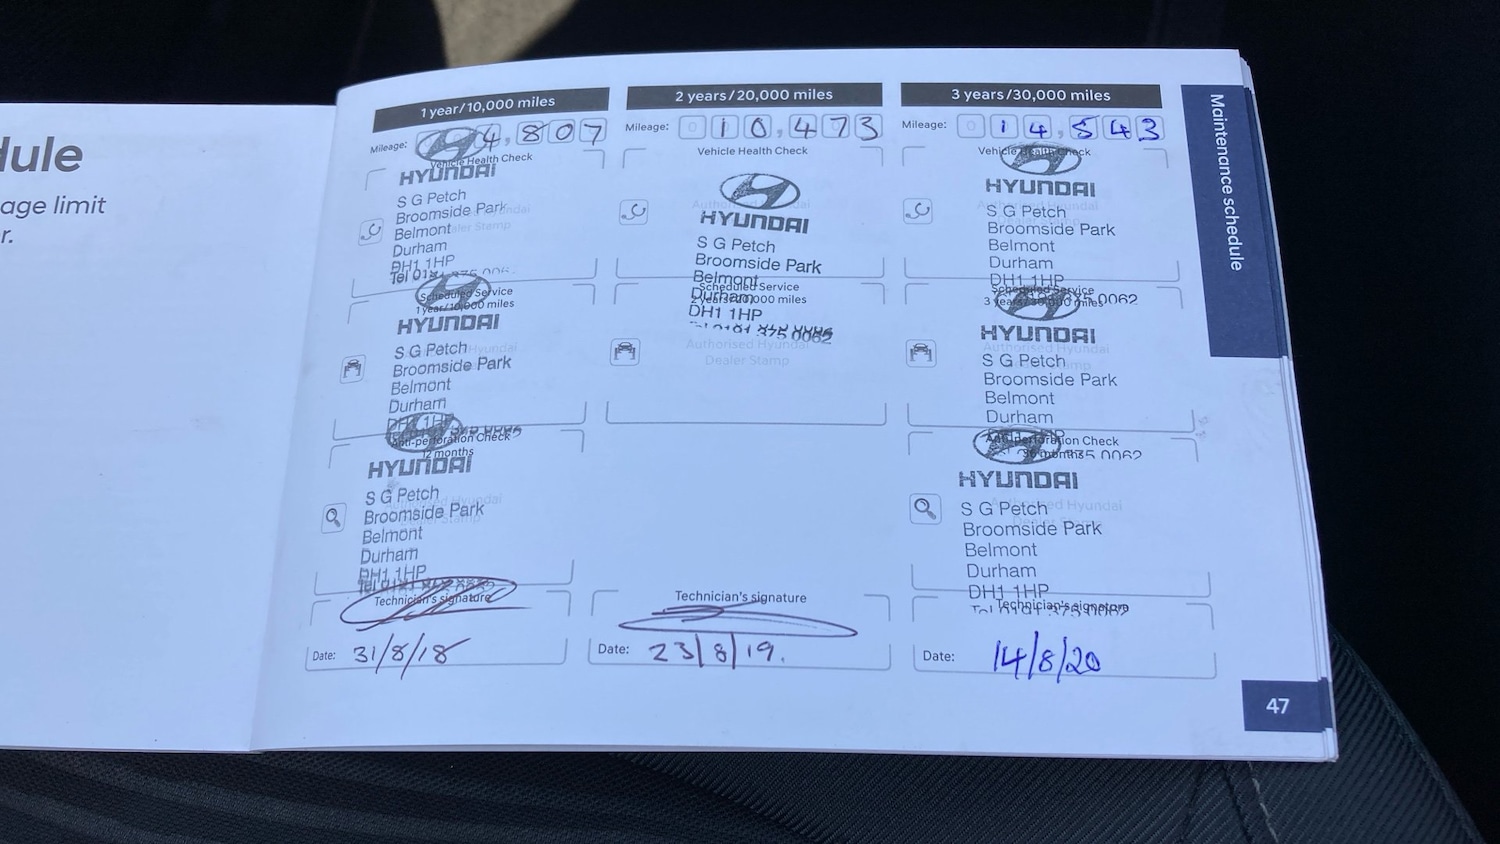 dule
age limit
r.
1 year/10,000 miles
Mileage: 4,807
Vehicle Health Check
HYUNDAI
S G Petch
Broomside Park
Belmont
Durham
DH1 1HP
Scheduled Service
1 year/10,000 miles
HYUNDAI
S G Petch
Broomside Park
Belmont
Durham
DH1 1HP
Anti-perforation Check
12 months
HYUNDAI
S G Petch
Broomside Park
Belmont
Durham
DH1 1HP
Technician's signature
Date: 31/8/18
2 years/20,000 miles
Mileage: 010,473
Vehicle Health Check
HYUNDAI
S G Petch
Broomside Park
Belmont
Durham
Scheduled Service
2 years/20,000 miles
DH1 1HP
Tel 0191 375 0062
Authorised Hyundai
Dealer Stamp
Technician's signature
Date: 23/8/19.
3 years/30,000 miles
Mileage: 014,543
Vehicle Health Check
HYUNDAI
S G Petch
Broomside Park
Belmont
Durham
DH1 1HP
Scheduled Service
3 years/30,000 miles
HYUNDAI
S G Petch
Broomside Park
Belmont
Durham
Anti-perforation Check
36 months
HYUNDAI
S G Petch
Broomside Park
Belmont
Durham
DH1 1HP
Tel 0191 375 0062
Technician's signature
Date: 14/8/20
Maintenance schedule
47